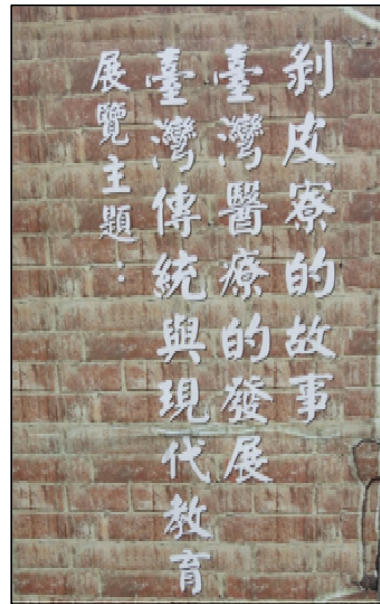 展覽主題：
臺灣傳統與現代教育
臺灣醫療的發展
剝皮寮的故事